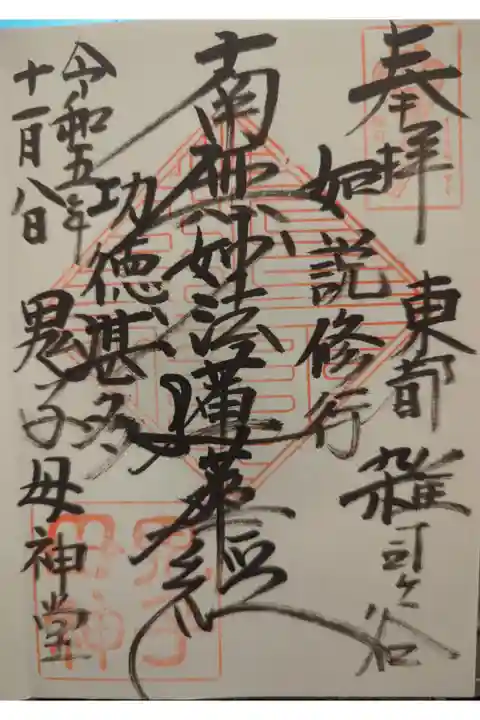 奉拝
東都
雑司ヶ谷
如説修行
南無妙法蓮華経
功徳甚多
令和五年
十一月八日
鬼子母神堂